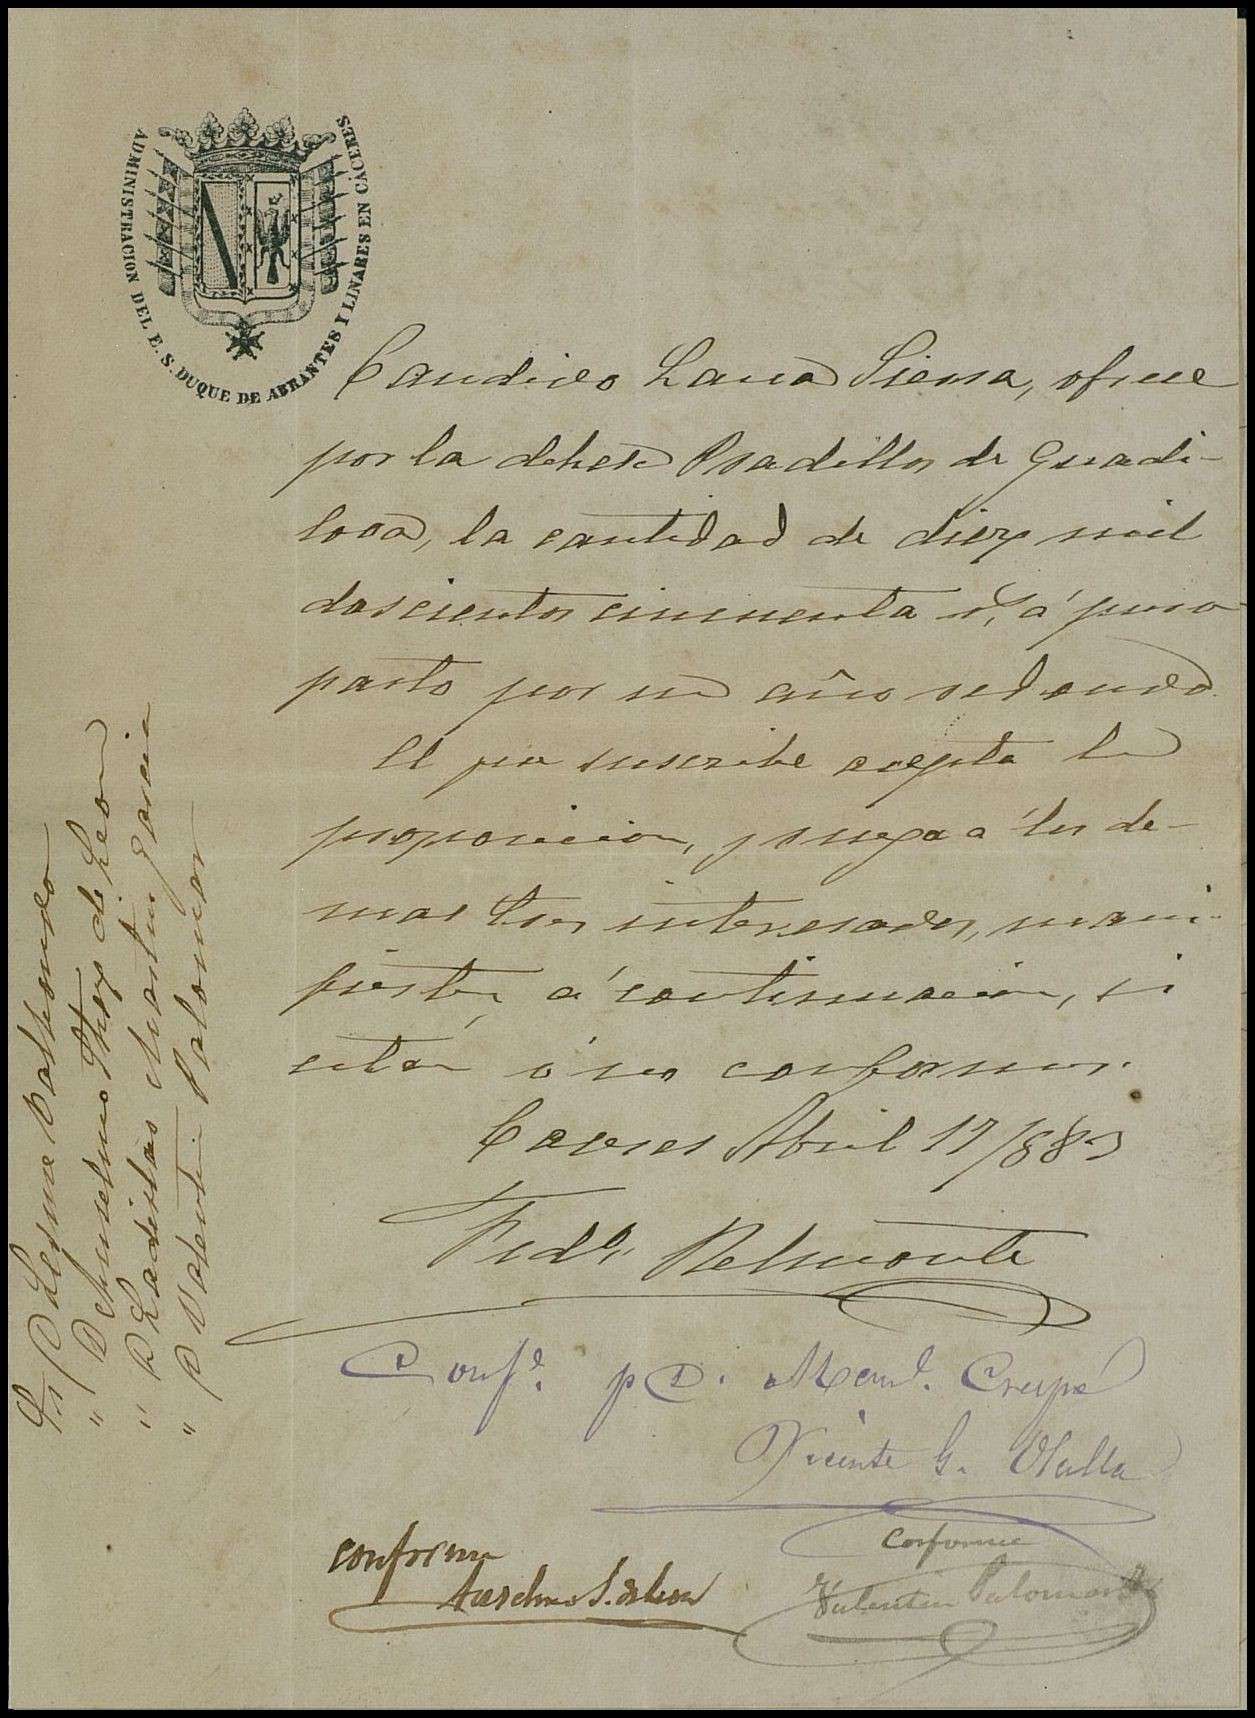 ADMINISTRACION DEL E. S. DUQUE DE ABRANTES Y LINARES EN CÁCERES
Candido Lana Sierra, ofrece
por la dehesa Pradillos de Guadi-
loba, la cantidad de diez mil
doscientos cincuenta r.s, á puro
pasto por un año redondo.
El que suscribe acepta la
proposicion, y ruega á los de-
mas tres interesados, mani-
fiesten á continuación, si
están ó no conformes.
Caceres Abril 17/883
Fed.co Belmonte
Conf.e p D. Man.l Crespo
Vicente G. Olalla
conforme
Anselmo S. de Leon
conforme
Valentin Palomar
Sr D Lesme Valhondo
" D Anselmo Shez de Leon
" D Ladislao Martin Garcia
" D Valentin Palomar